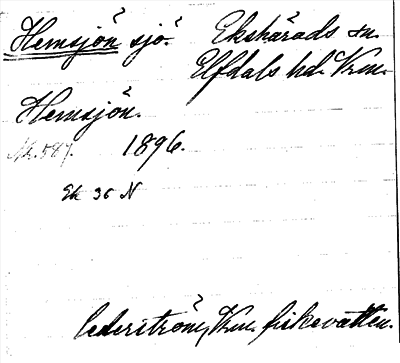 Hemsjön sjö. Ekshärads sn.
Elfdals hd. Vrm.
Hemsjön.
1896.
Ek 36 N
Cederström, Vrm. fiskevatten.